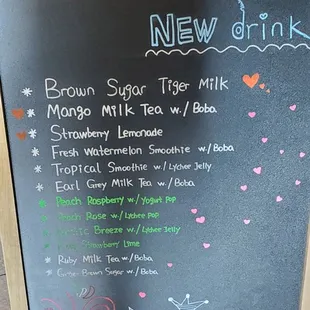 NEW drink
Brown Sugar Tiger Milk
Mango Milk Tea w./Boba
Strawberry Lemonade
Fresh Watermelon Smoothie w./Boba
Tropical Smoothie w./Lychee Jelly
Earl Grey Milk Tea w./Boba
Peach Raspberry w./Yogurt Pop
Peach Rose w./Lychee Pop
Breeze w./Lychee Jelly
Strawberry Lime
Ruby Milk Tea w./Boba
Brown Sugar w./Boba